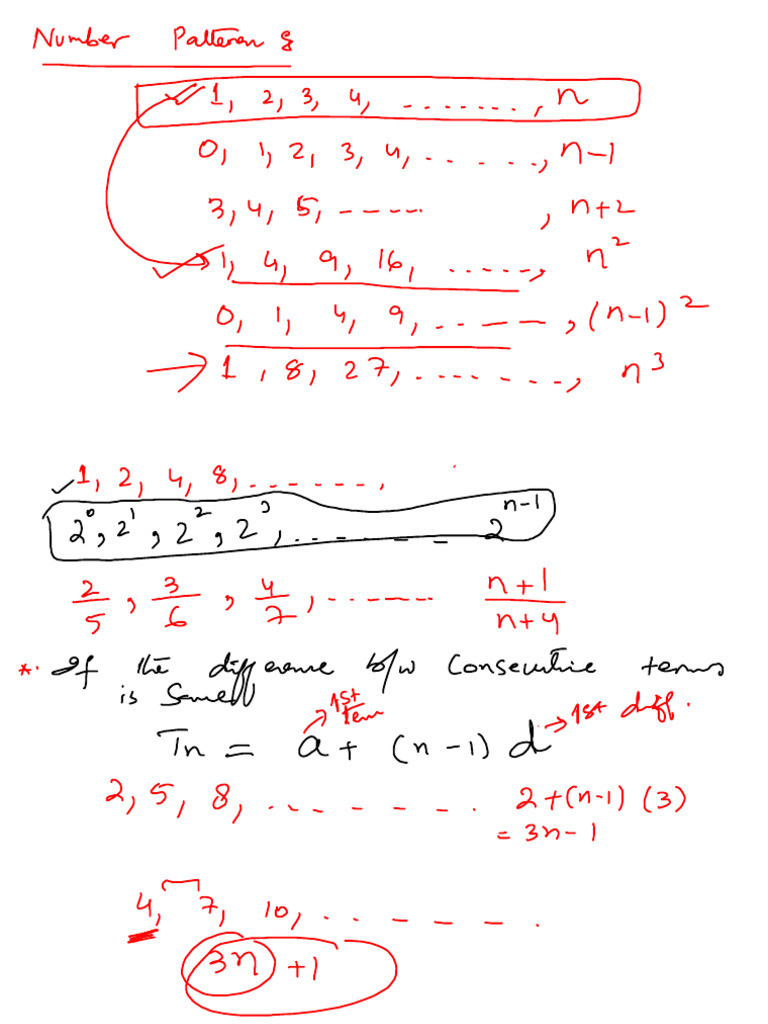 Number Patteren &
1, 2, 3, 4, ........, n
0, 1, 2, 3, 4, ......, n-1
3, 4, 5, ----- , n+2
1, 4, 9, 16, ......, n²
0, 1, 4, 9, ......, (n-1)²
1, 8, 27, ........, n³
1, 2, 4, 8, .......,
2⁰, 2¹, 2², 2³, ....... 2ⁿ⁻¹
2/5, 3/6, 4/7, ....... n+1/n+4
*. If the difference b/w Consecutive terms
is same
1st term
1st diff.
Tn = a + (n-1) d
2, 5, 8, ......... 2+(n-1) (3)
= 3n-1
4, 7, 10, ........
3n +1